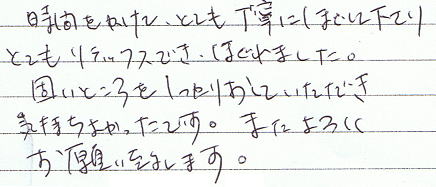 時間をかけて、とても丁寧にほぐして下さり
とてもリラックスでき、ほぐれました。
固いところをしっかりおしていただき
気持ちよかったです。またよろしく
お願い致します。